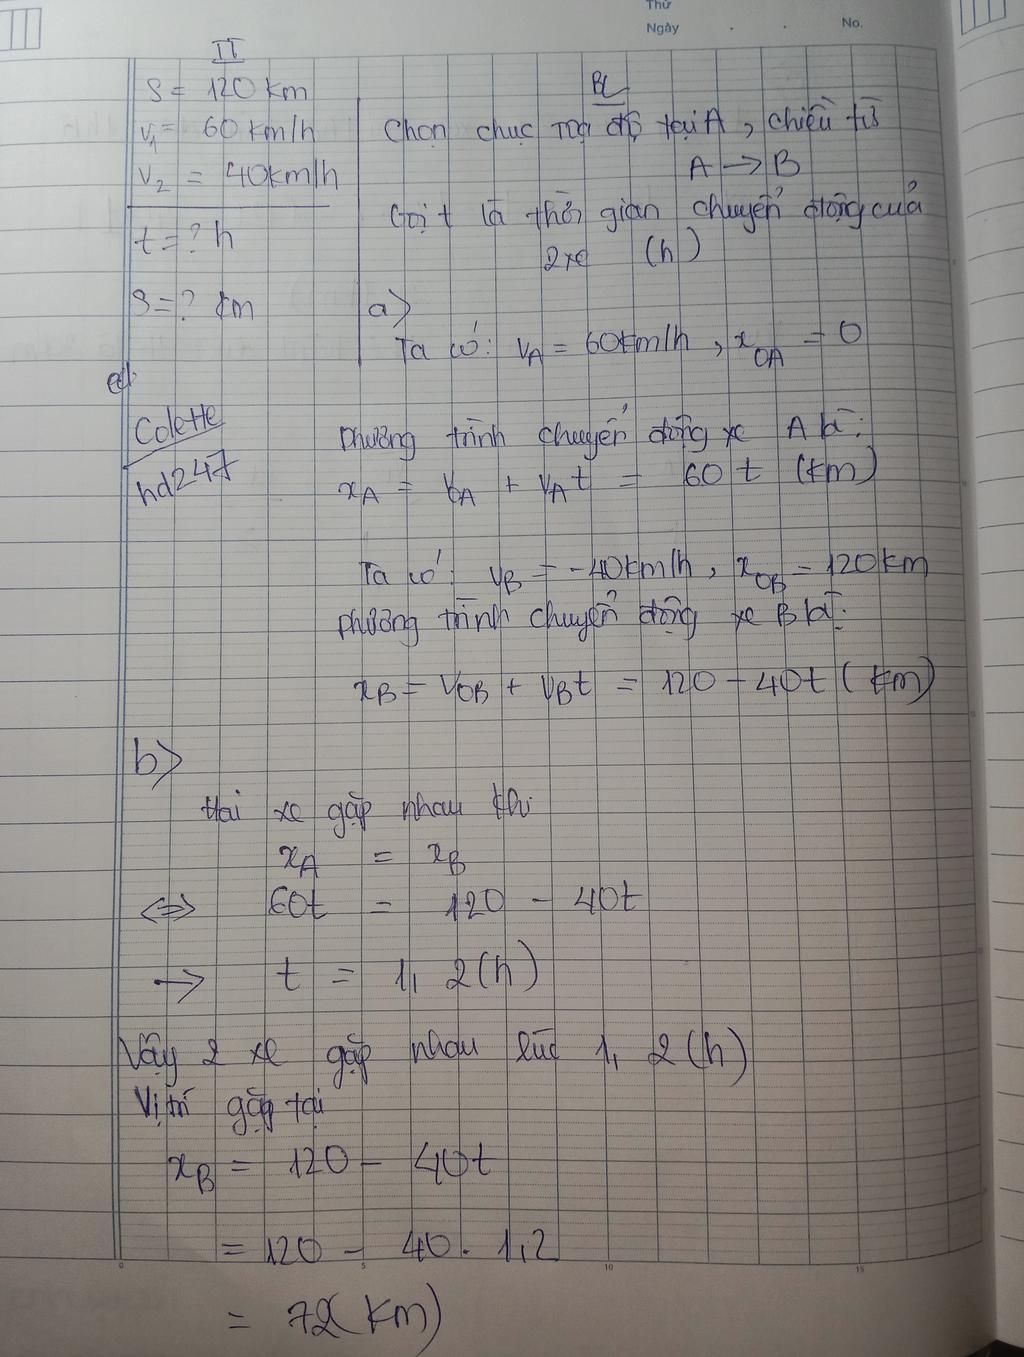 Thứ
Ngày . . No.
II
S = 120 km
V₁ = 60 km/h
V₂ = 40km/h
t = ? h
S = ? km
BL
Chọn chục toạ độ tại A, chiều từ
A → B
Gọi t là thời gian chuyển động của
2 xe (h)
a>
Ta có: v_A = 60km/h, x_OA = 0
Colette
hd247
phương trình chuyển động xe A là:
x_A = v_A + v_A t = 60 t (km)
Ta có: v_B = -40km/h, x_OB = 120km
phương trình chuyển động xe B là:
x_B = v_OB + v_B t = 120 - 40t (km)
b>
Hai xe gặp nhau khi
x_A = x_B
⇔ 60t = 120 - 40t
→ t = 1,2(h)
Vậy 2 xe gặp nhau lúc 1,2(h)
Vị trí gặp tại
x_B = 120 - 40t
= 120 - 40.1,2
= 72(km)
0 5 10 15